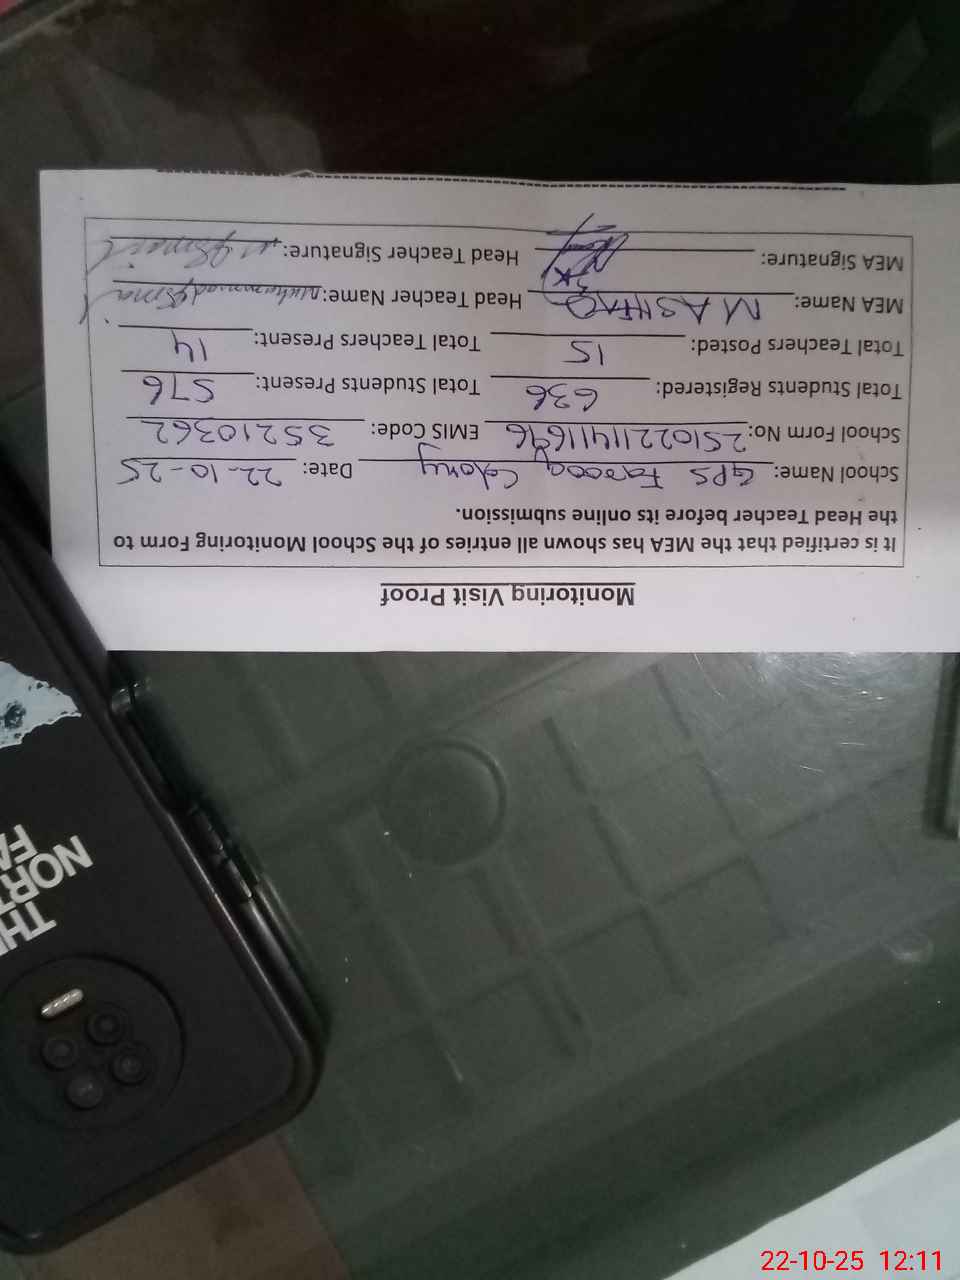 Monitoring Visit Proof
It is certified that the MEA has shown all entries of the School Monitoring Form to
the Head Teacher before its online submission.
School Name: GPS Farooq Colony Date: 22-10-25
School Form No: EMIS Code: 35210362
Total Students Registered: 636 Total Students Present: 576
Total Teachers Posted: 15 Total Teachers Present: 14
MEA Name: M ASHFAQ Head Teacher Name: Muhammad Ismail
MEA Signature: Head Teacher Signature: M Ismail
THE
NORTH
FA
22-10-25 12:11